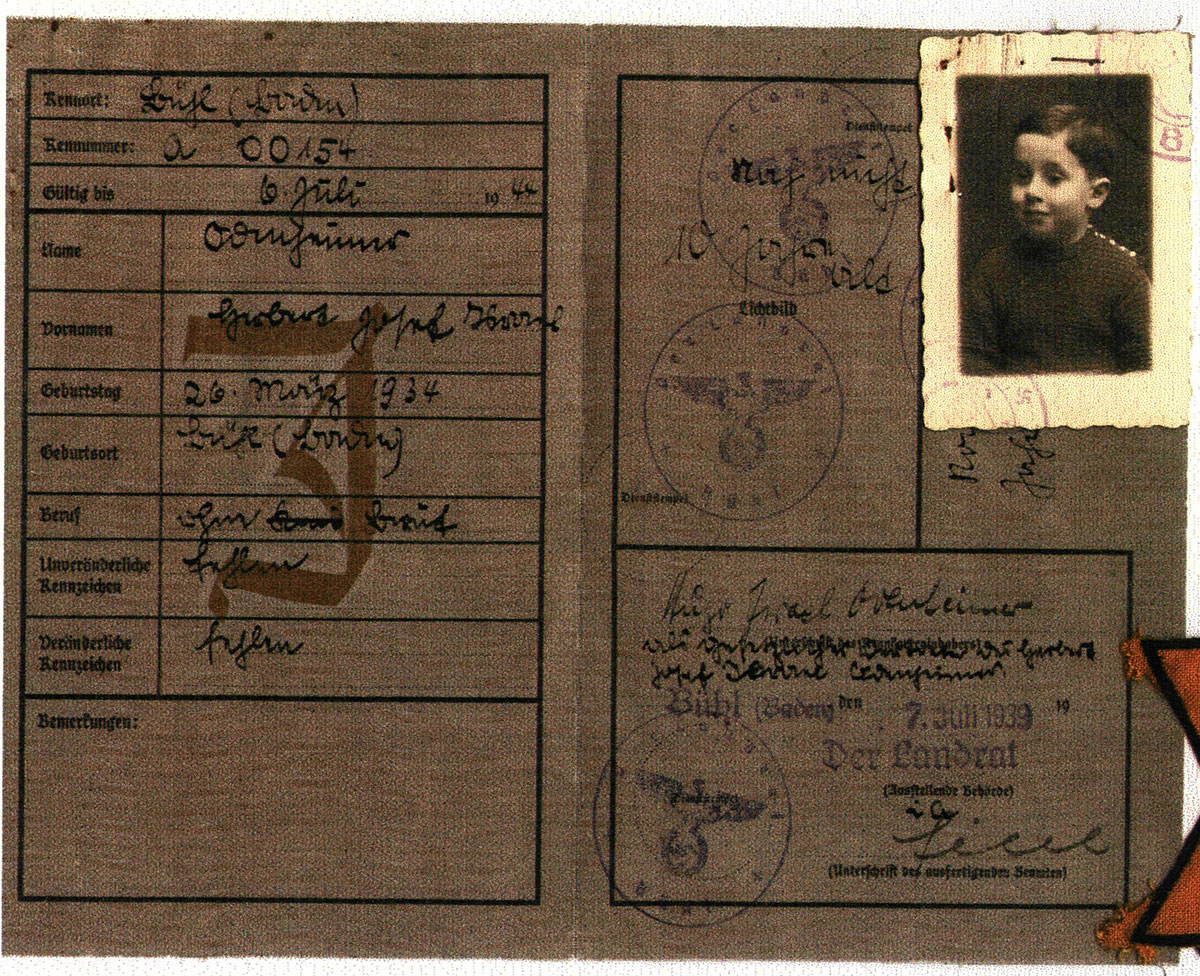 Kennort: Bühl (Baden)
Kennummer: A 00154
Gültig bis 6. Juli 1944
Name Odenheimer
Vornamen Herbert Josef Israel
Geburtstag 26. März 1934
Geburtsort Bühl (Baden)
Beruf ohne Beruf
Unveränderliche Kennzeichen fehlen
Veränderliche Kennzeichen fehlen
Bemerkungen:
J
Dienststempel
Noch nicht
10 Jahre
alt
Lichtbild
Dienststempel
Hugo Israel Odenheimer
als des Herbert
Josef Israel Odenheimer
Bühl (Baden) den 7. Juli 1939 19
Der Landrat
(Ausstellende Behörde)
i A
(Unterschrift des ausfertigenden Beamten)